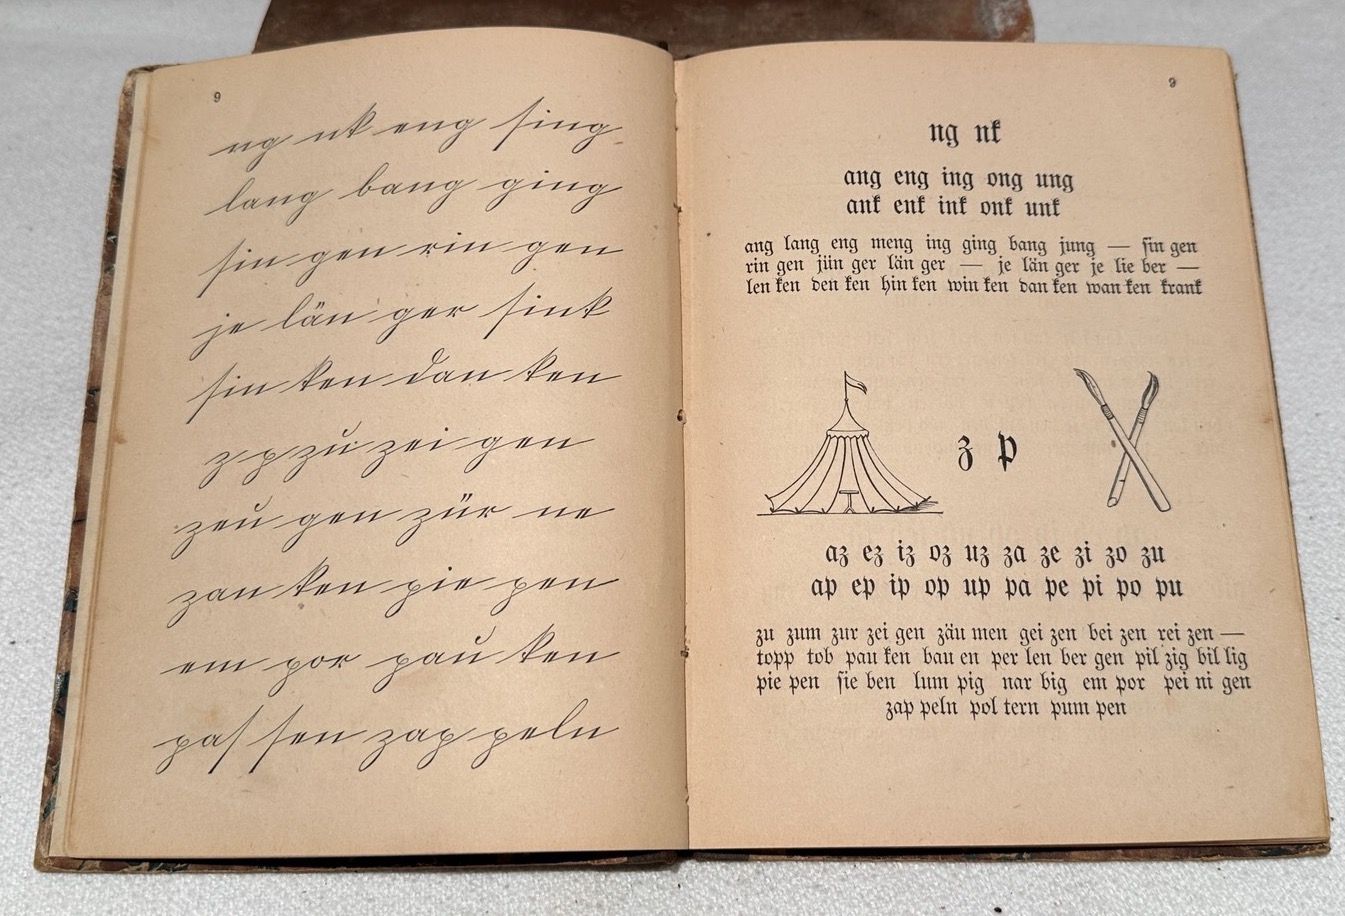 9
ng nk eng sing
lang bang ging
sin gen rin gen
je län ger sink
sin ken dan ken
z p zu zei gen
zeu gen zür ne
zan ken pie pen
em por pau ken
pas sen zap peln
9
ng nk
ang eng ing ong ung
ank enk ink onk unk
ang lang eng meng ing ging bang jung — sin gen
rin gen jün ger län ger — je län ger je lie ber —
len ken den ken hin ken win ken dan ken wan ken krank
z p
az ez iz oz uz za ze zi zo zu
ap ep ip op up pa pe pi po pu
zu zum zur zei gen zäu men gei zen bei zen rei zen —
topp tob pau ken bau en per len ber gen pil zig bil lig
pie pen sie ben lum pig nar big em por pei ni gen
zap peln pol tern pum pen